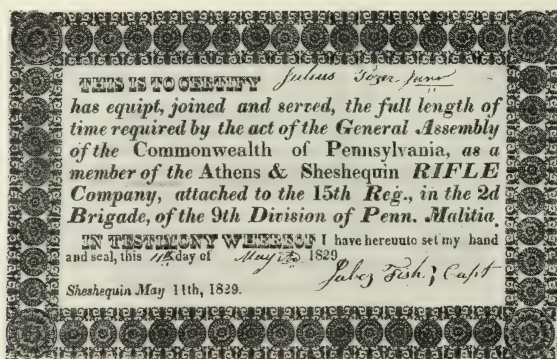 THIS IS TO CERTIFY Julius Tozer Junr
has equipt, joined and served, the full length of
time required by the act of the General Assembly
of the Commonwealth of Pennsylvania, as a
member of the Athens & Sheshequin RIFLE
Company, attached to the 15th Reg., in the 2d
Brigade, of the 9th Division of Penn. Malitia
IN TESTIMONY WHEREOF I have hereunto set my hand
and seal, this 11th day of May 1829
Jabez Fish, Capt
Sheshequin May 11th, 1829.